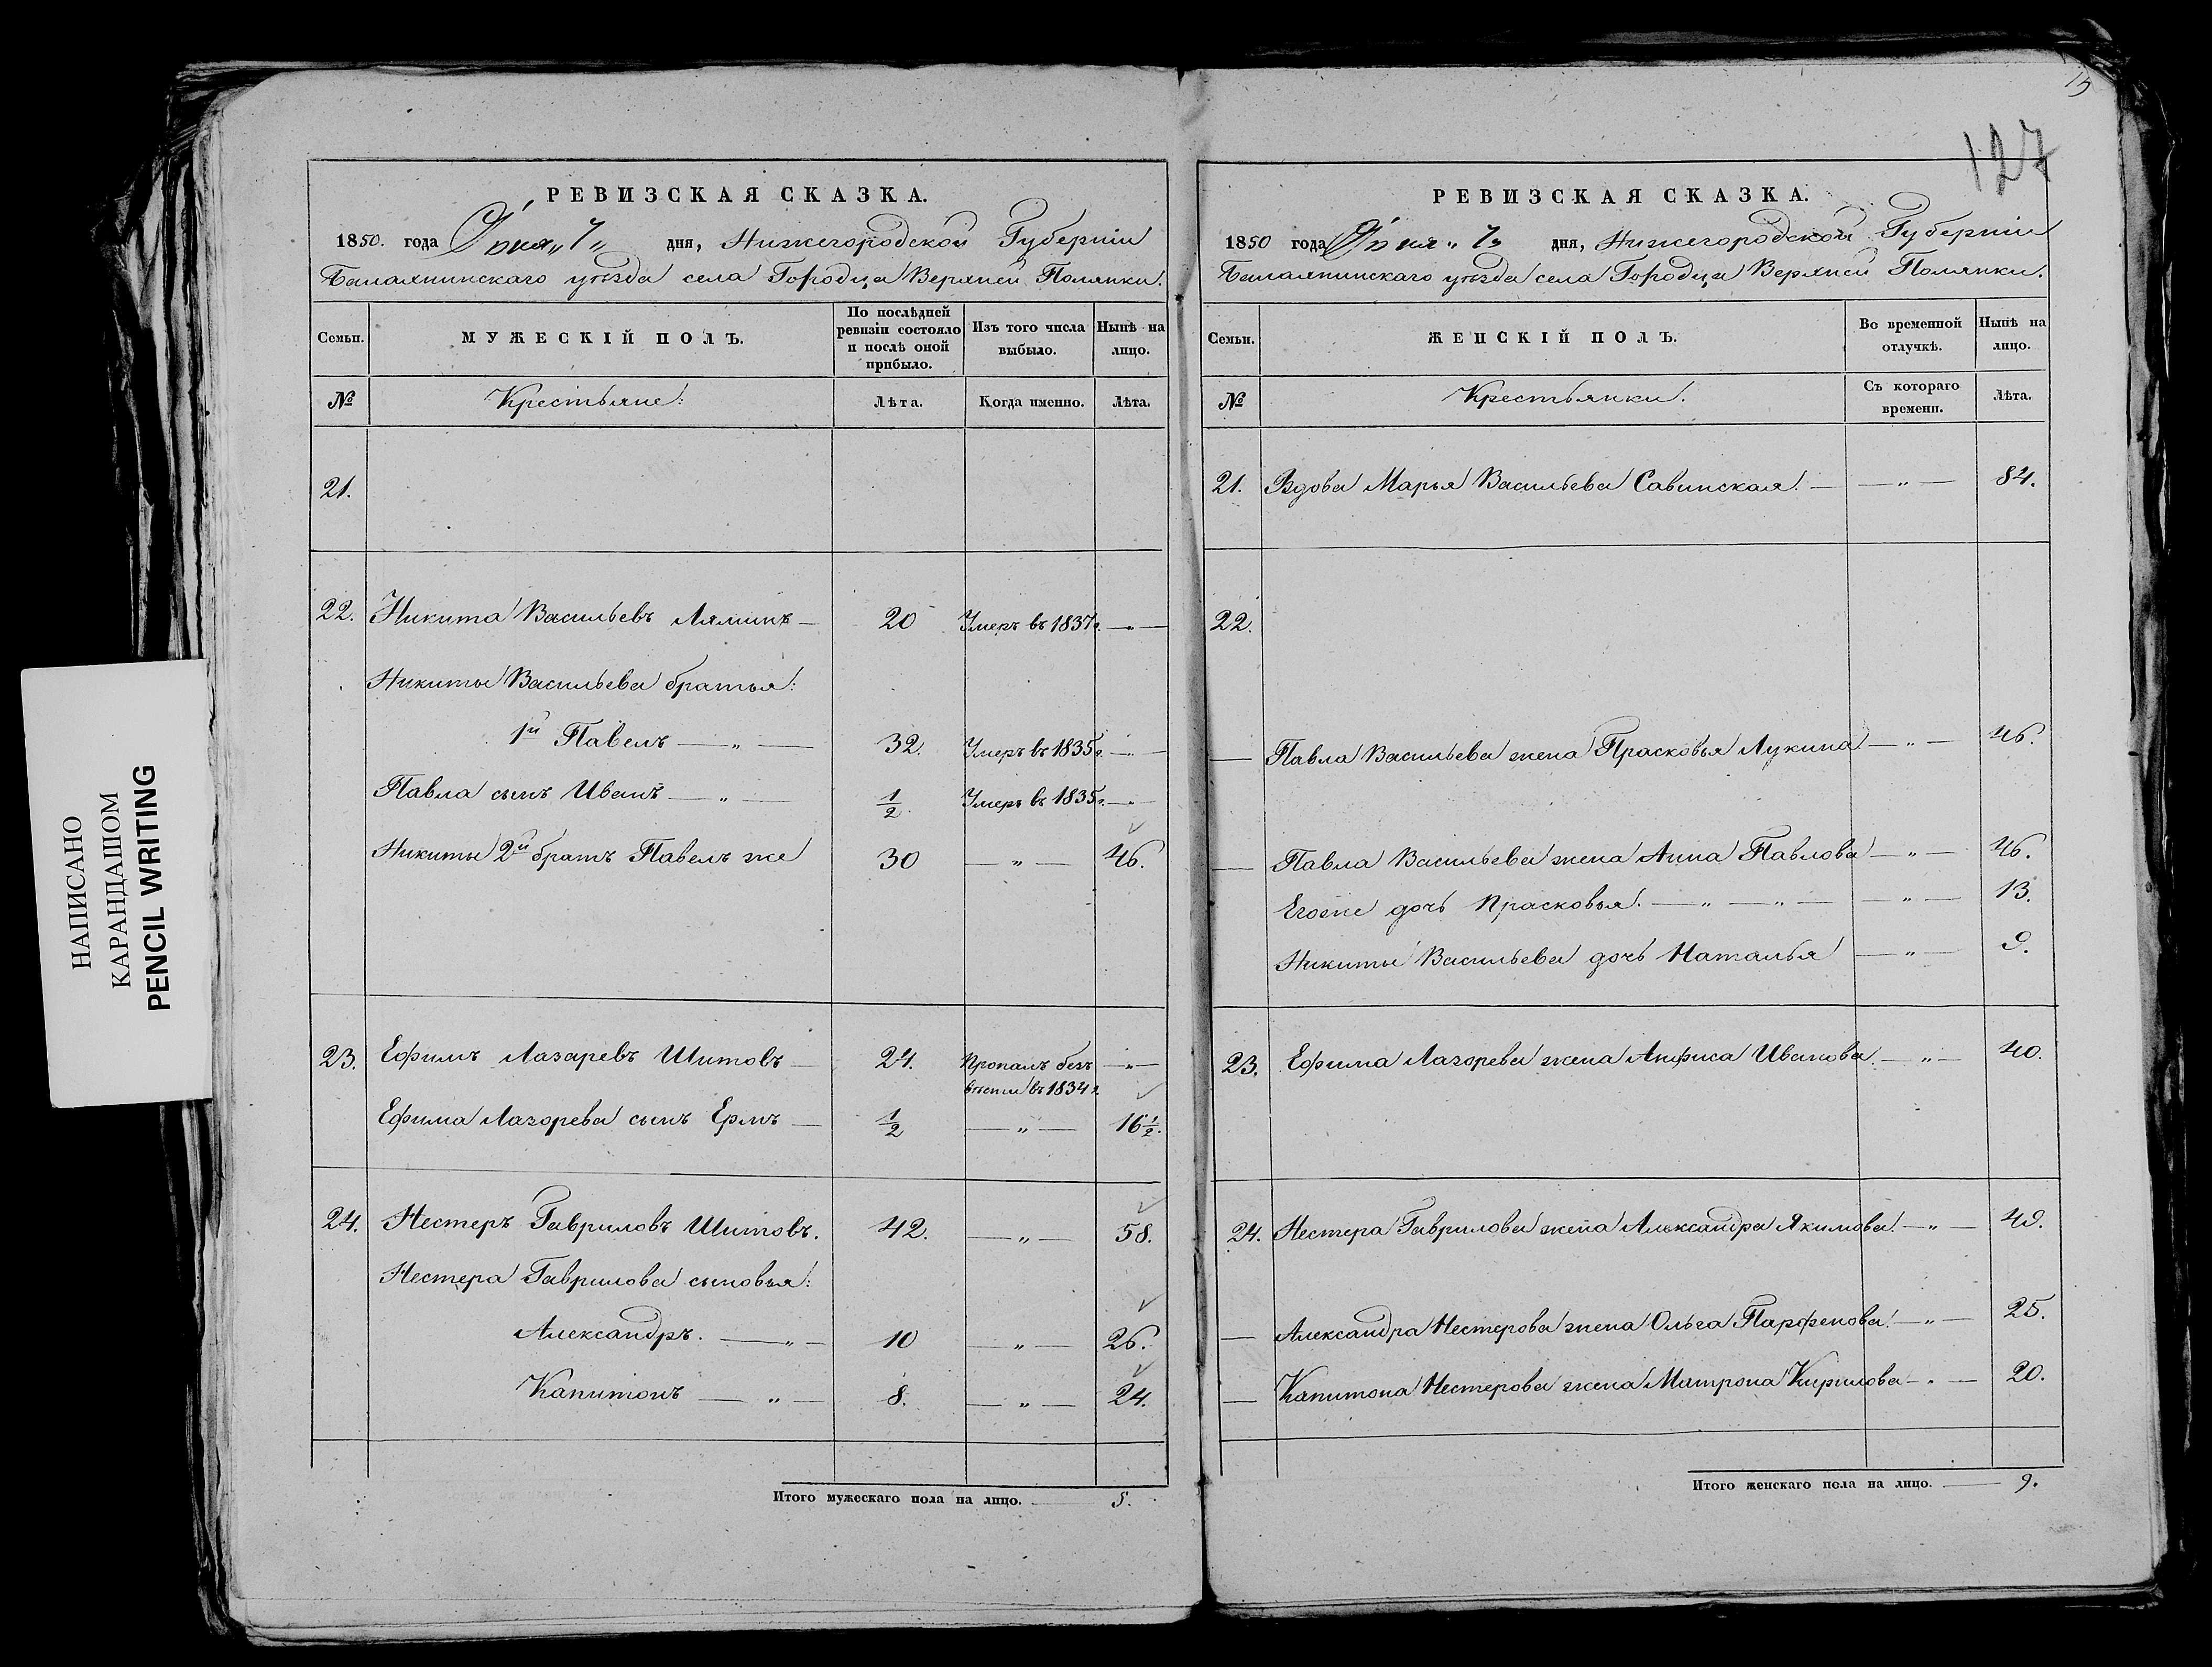 15
127
НАПИСАНО
КАРАНДАШОМ
PENCIL WRITING
РЕВИЗСКАЯ СКАЗКА.
1850. года „7„ дня, Нижегородской Губерніи
Балахнинскаго уѣзда села Городца Верхней Полянки.
Семьи.
МУЖЕСКІЙ ПОЛЪ.
По послѣдней
ревизіи состояло
и послѣ оной
прибыло.
Изъ того числа
выбыло.
Нынѣ на
лицо.
№
Крестьяне:
Лѣта.
Когда именно.
Лѣта.
21.
22. Никита Васильевъ Ляминъ — 20 Умеръ въ 1837г. — „ —
Никиты Васильева братья:
1й Павелъ — „ — 32. Умеръ въ 1835г. — „ —
Павла сынъ Иванъ — „ — 1/2. Умеръ въ 1835г. — „ —
Никиты 2й братъ Павелъ же 30 — „ — 46.
23. Ефимъ Лазаревъ Шитовъ — 24. Пропалъ безъ — „ —
вѣсти въ 1834 г.
Ефима Лазорева сынъ Ермъ — 1/2 — „ — 16 1/2.
24. Нестеръ Гавриловъ Шитовъ. 42. — „ — 58.
Нестера Гаврилова сыновья:
Александръ. — „ — 10 — „ — 26.
Капитонъ — „ — 8. — „ — 24.
Итого мужескаго пола на лицо. — 5.
РЕВИЗСКАЯ СКАЗКА.
1850 года „7„ дня, Нижегородской Губерніи
Балахнинскаго уѣзда села Городца Верхней Полянки.
Семьи.
ЖЕНСКІЙ ПОЛЪ.
Во временной
отлучкѣ.
Нынѣ на
лицо.
№
Крестьянки.
Съ котораго
времени.
Лѣта.
21. Вдова Марья Васильева Савинская. — — „ — 84.
22.
— Павла Васильева жена Прасковья Лукина — „ — 46.
— Павла Васильева жена Анна Павлова — „ — 46.
Егоже дочь Прасковья. — „ — „ — — „ — 13.
Никиты Васильева дочь Наталья — „ — 9.
23. Ефима Лазорева жена Анфиса Иванова. — „ — 40.
24. Нестера Гаврилова жена Александра Якимова. — „ — 49.
— Александра Нестерова жена Ольга Парфенова. — „ — 25.
— Капитона Нестерова жена Матрона Кирилова — „ — 20.
Итого женскаго пола на лицо. — 9.